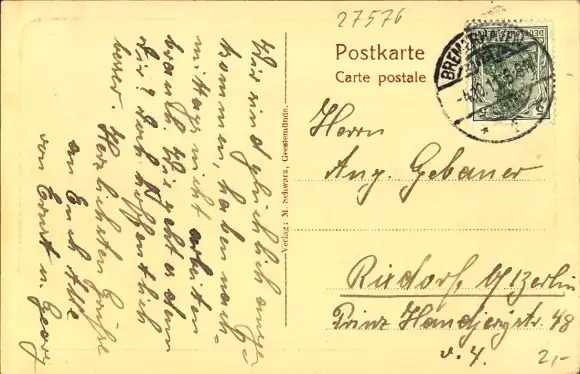 27576
Postkarte
Carte postale
BREMERHAVEN
DEUTSCHES REICH
Wir sind glücklich ange-
kommen, haben nach-
mittags nicht arbeiten
brauch. Wie geht es denn
Dir? Doch hoffentlich
besser. Herzlichsten Grüße
an Euch Alle
von Ernst u. Georg
Verlag: M. Schwarz, Geestemünde.
Herrn
Aug. Gebauer
Rixdorf b/Berlin
Prinz Handjerystr 48
v. 4.
2,-